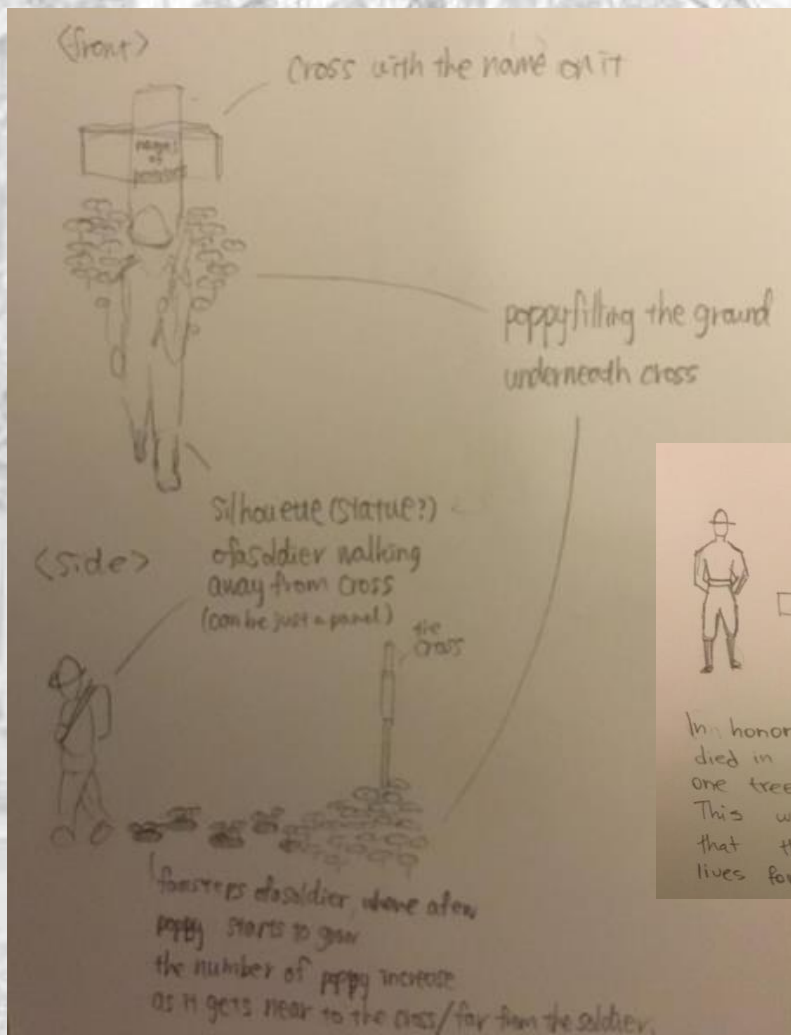 <front>
cross with the name on it
names
of
poppy filling the ground
underneath cross
silhouette (statue?)
of a soldier walking
away from cross
(can be just a panel)
<side>
the
cross
footsteps of a soldier, where a few
poppy starts to grow
the number of poppy increase
as it gets near to the cross/far from the soldier
In honor
died in
one tree
This w
that th
lives for